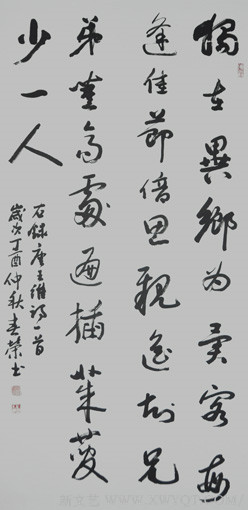 獨在異鄉為異客每
逢佳節倍思親遙知兄
弟登高處遍插茱萸
少一人
右錄唐王維詩一首
歲次丁酉仲秋春榮书